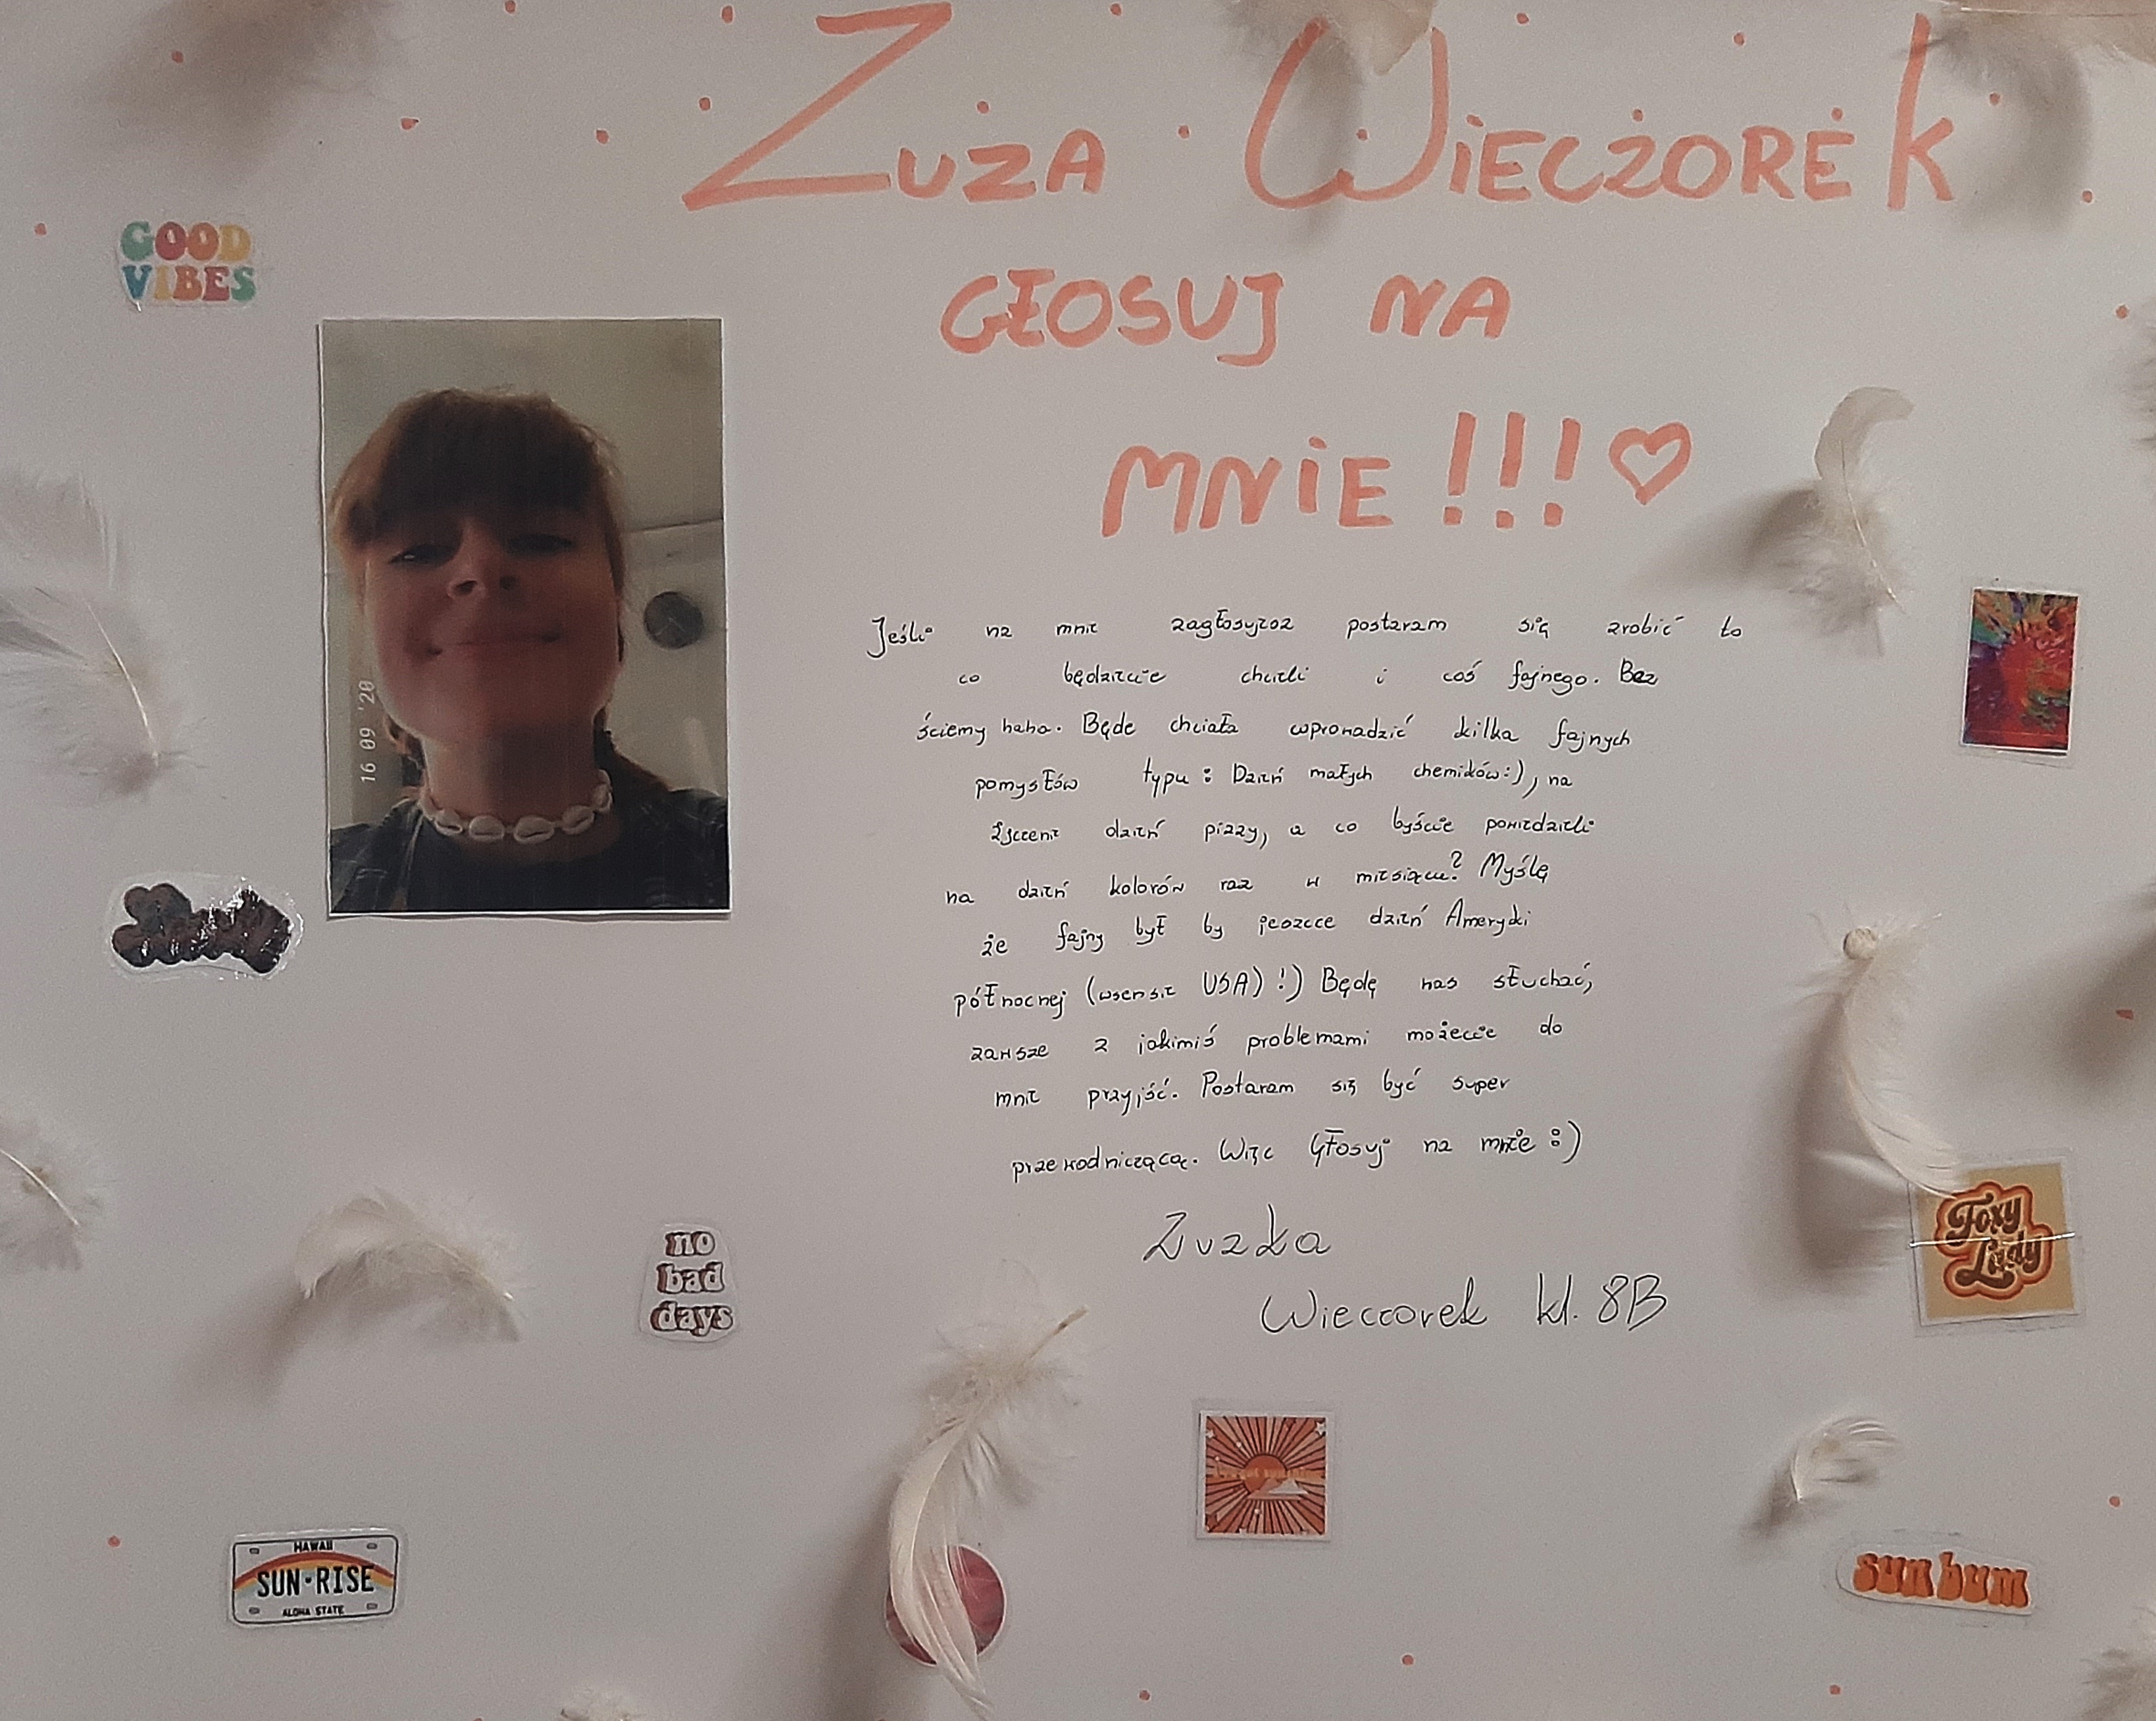 ZUZA WIECZOREK
GŁOSUJ NA
MNIE !!! ♡
GOOD
VIBES
16 09 '20
Jeśli na mnie zagłosujesz postaram się zrobić to
co będziecie chcieli i coś fajnego. Bez
ściemy haha. Będe chciała wprowadzić kilka fajnych
pomysłów typu : Dzień małych chemików:), na
dzień pizzy, a co byście powiedzieli
na dzień kolorów raz w miesiącu? Myślę
że fajny był by jeszcce dzień Ameryki
północnej (wsensie USA) !) Będę nas słuchać,
zawsze z jakimiś problemami możecie do
mnie przyjść. Postaram się być super
przewodniczącą. Więc Głosuj na mnie :)
Zuzka
Wieczorek kl. 8B
no
bad
days
Foxy
Lady
HAWAII
SUN-RISE
ALOHA STATE
sun bum